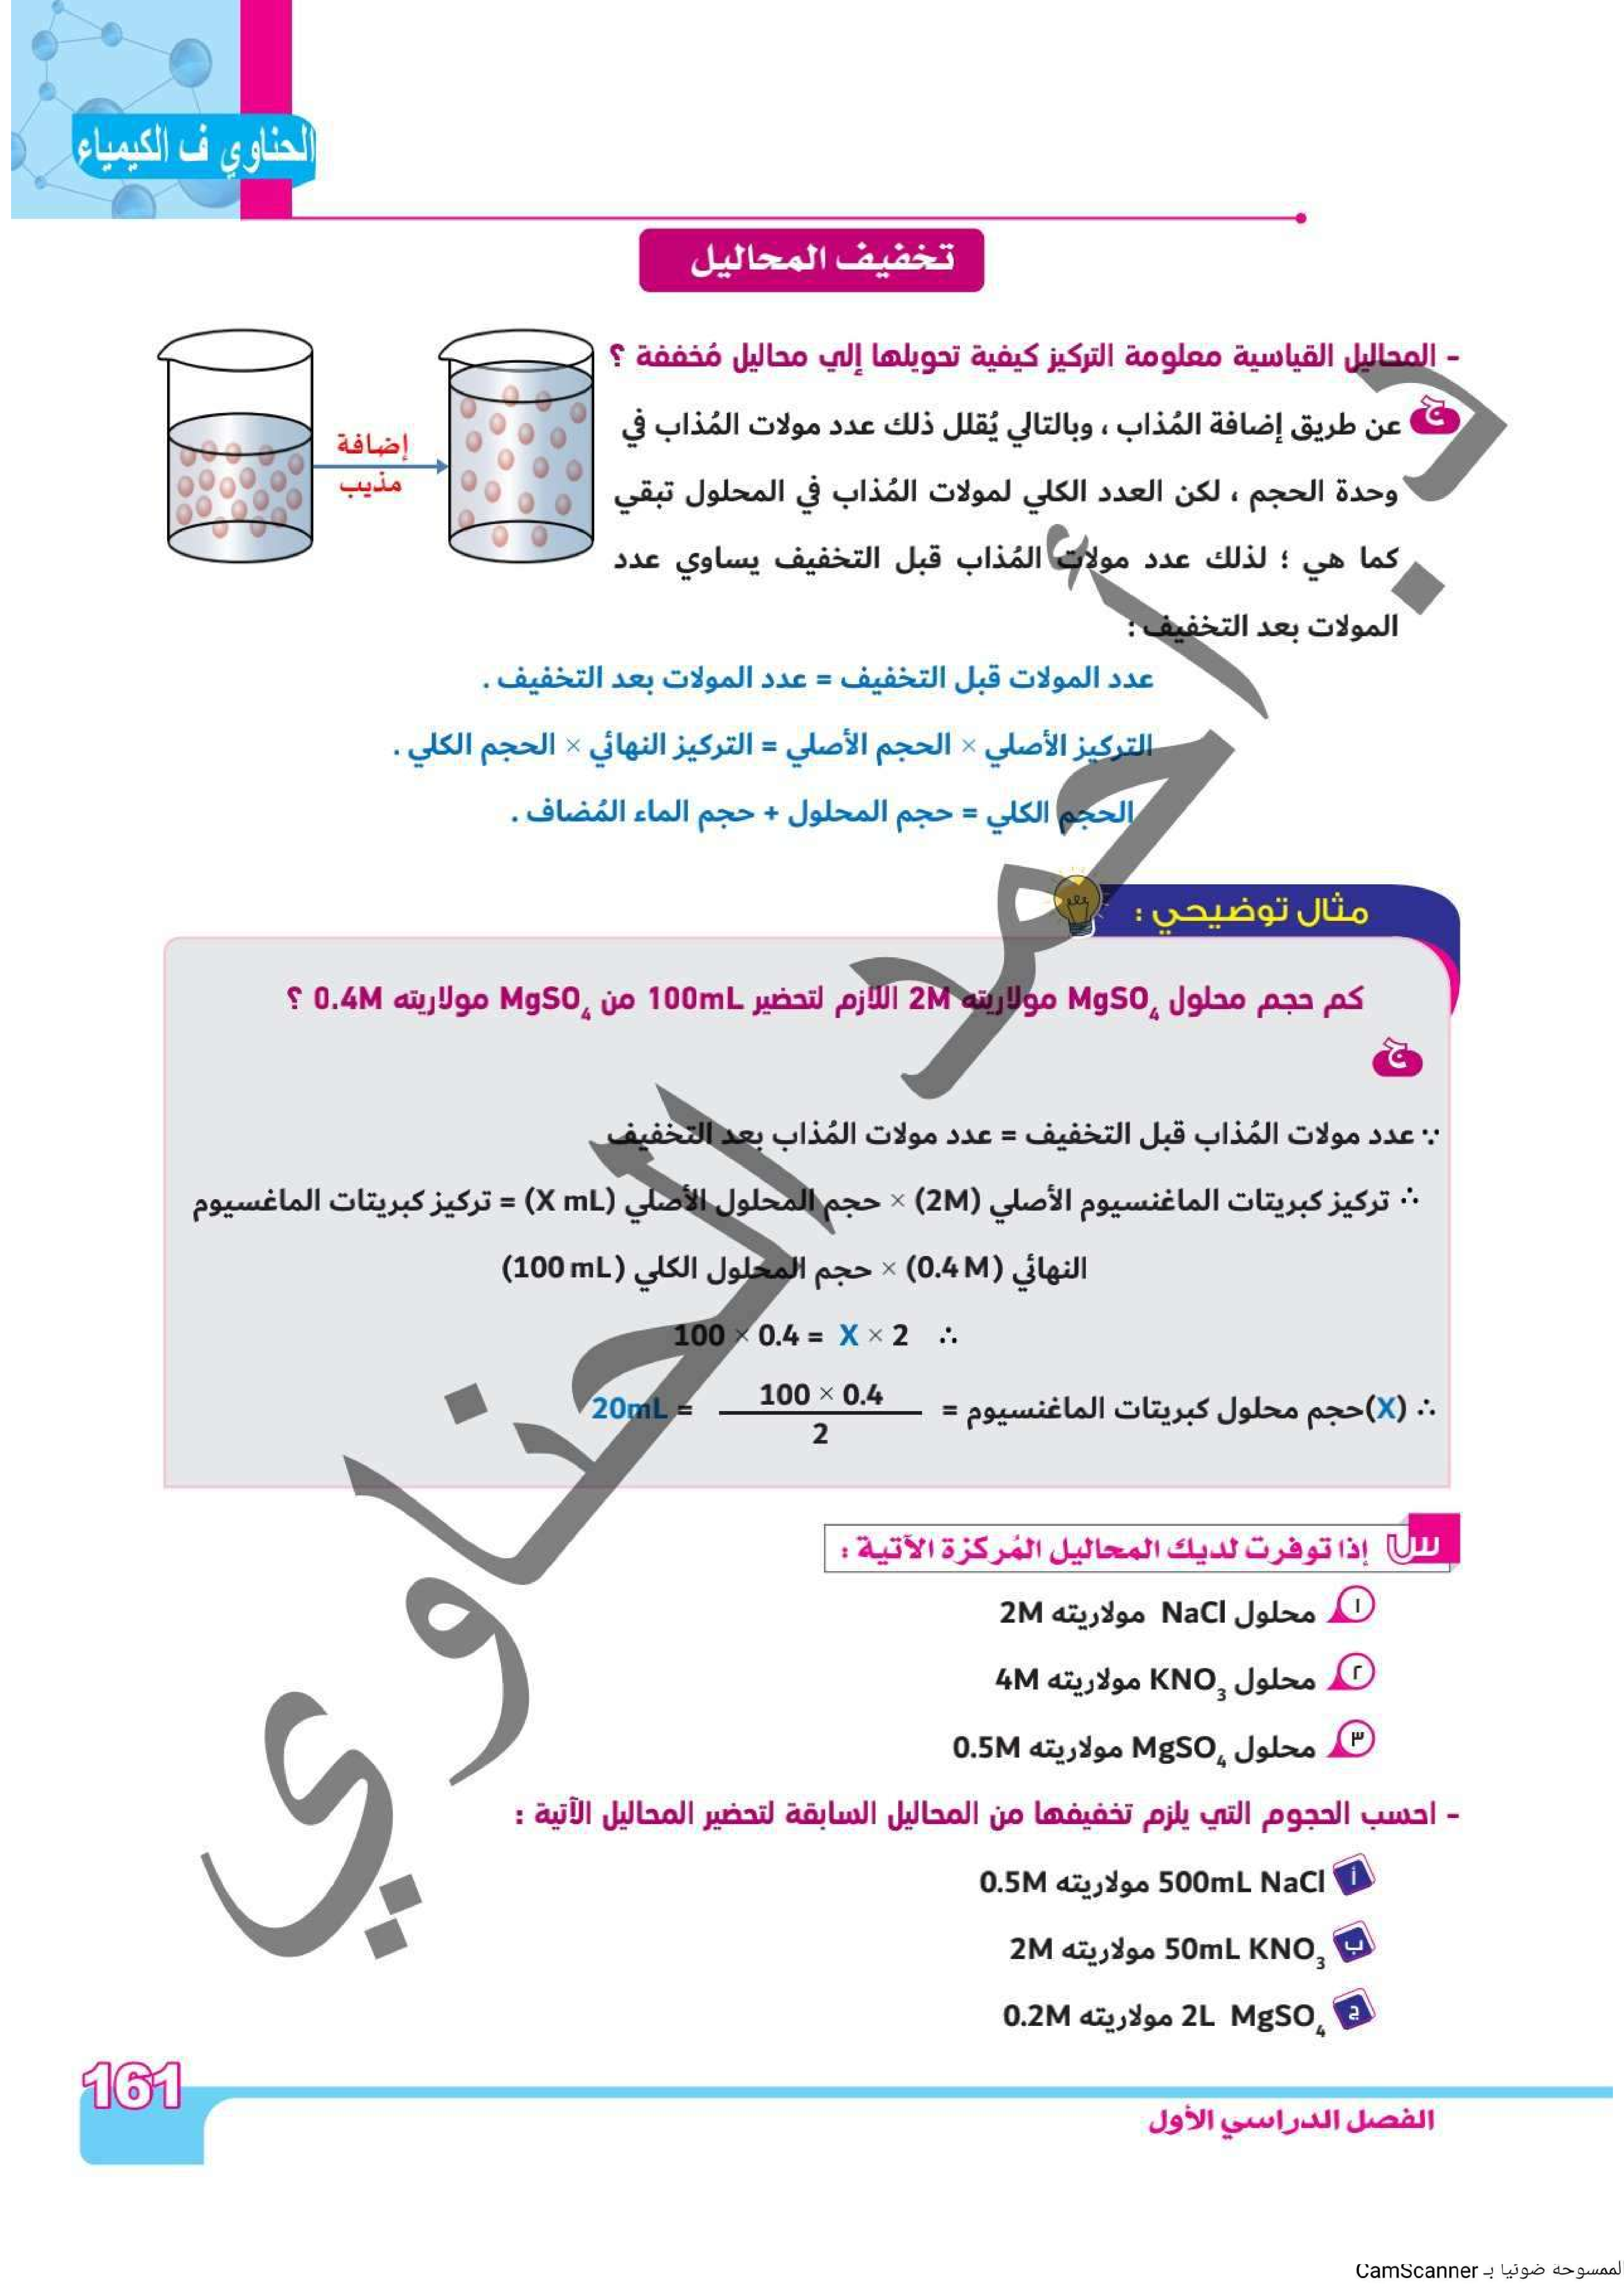 الحناوي ف الكيمياء
تخفيف المحاليل
- المحاليل القياسية معلومة التركيز كيفية تحويلها إلي محاليل مُخففة ؟
ج عن طريق إضافة المُذاب ، وبالتالي يُقلل ذلك عدد مولات المُذاب في
وحدة الحجم ، لكن العدد الكلي لمولات المُذاب في المحلول تبقي
كما هي ؛ لذلك عدد مولات المُذاب قبل التخفيف يساوي عدد
المولات بعد التخفيف :
إضافة
مذيب
عدد المولات قبل التخفيف = عدد المولات بعد التخفيف .
التركيز الأصلي × الحجم الأصلي = التركيز النهائي × الحجم الكلي .
الحجم الكلي = حجم المحلول + حجم الماء المُضاف .
مثال توضيحي :
كم حجم محلول MgSO4 مولاريته 2M اللازم لتحضير 100mL من MgSO4 مولاريته 0.4M ؟
ج
∵ عدد مولات المُذاب قبل التخفيف = عدد مولات المُذاب بعد التخفيف
∴ تركيز كبريتات الماغنسيوم الأصلي (2M) × حجم المحلول الأصلي (X mL) = تركيز كبريتات الماغسيوم
النهائي (0.4 M) × حجم المحلول الكلي (100 mL)
∴ 2 × X = 0.4 × 100
∴ (X)حجم محلول كبريتات الماغنسيوم = 100 × 0.4 / 2 = 20mL
س إذا توفرت لديك المحاليل المُركزة الآتية :
١ محلول NaCl مولاريته 2M
٢ محلول KNO3 مولاريته 4M
٣ محلول MgSO4 مولاريته 0.5M
- احسب الحجوم التي يلزم تخفيفها من المحاليل السابقة لتحضير المحاليل الآتية :
أ 500mL NaCl مولاريته 0.5M
ب 50mL KNO3 مولاريته 2M
ج 2L MgSO4 مولاريته 0.2M
161
الفصل الدراسي الأول
د. أحمد الحناوي
لممسوحة ضوئيا بـ CamScanner